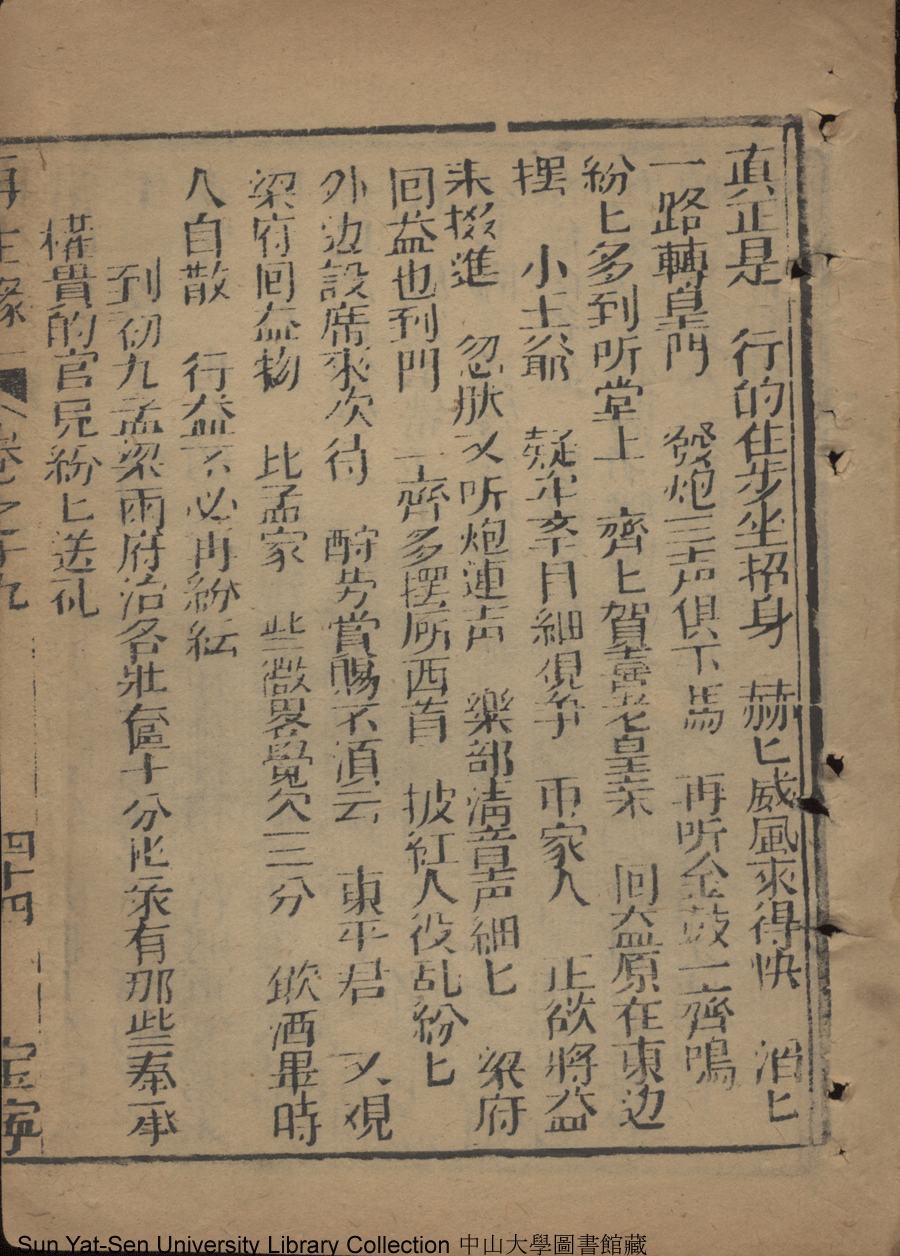 真正是　行的住步坐招身　赫匕威風來得快　滔匕
一路轉皇門　發炮三声俱下馬　再听金鼓一齊鳴
紛匕多到听堂上　齊匕賀喜老皇亲　回盆原在東边
摆　小王爺　疑　目細　争　币家人　正欲將盆
来掇進　忽肰又听炮連声　樂部淸音声細匕　梁府
回盆也到門　一齊多摆厛西首　披紅人役乱紛匕
外边設席來次待　酧劳賞賜不湏云　東平君　又覌
梁府回盆物　比孟家　些微畧覺欠三分　飲酒畢時
人自散　行盆不必再紛紜
到初九孟梁兩府治各壯奩十分　有那些奉承
權貴的官員紛匕送礼
再生緣　卷之十九　四十四　宝寧
Sun Yat-Sen University Library Collection 中山大學圖書館藏